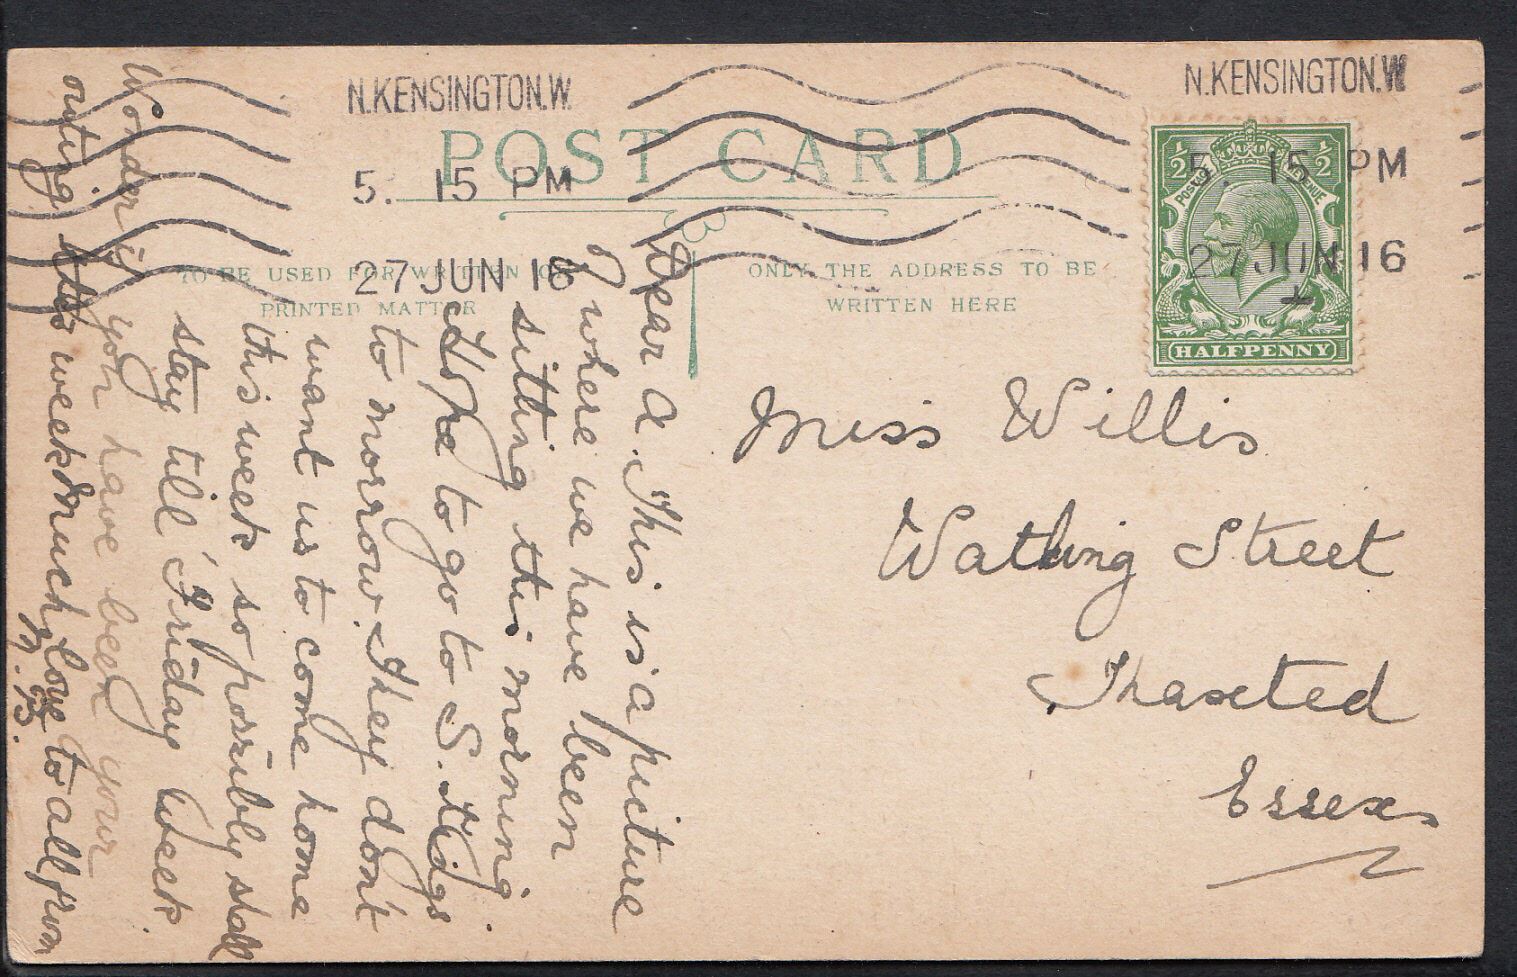 N.KENSINGTON.W.
5. 15 PM
27 JUN 16
N.KENSINGTON.W
5. 15 PM
27 JUN 16
POST CARD
TO BE USED FOR WRITTEN OR
PRINTED MATTER
ONLY THE ADDRESS TO BE
WRITTEN HERE
½ ½
POSTAGE REVENUE
HALFPENNY
Miss Willis
Watling Street
Thaxted
Essex
Dear A. This is a picture
of where we have been
sitting this morning.
Hope to go to S.
to morrow. They don't
want us to come home
this week so possibly shall
stay till Friday week
Wonder if you have been your
outing this week. Much love to all from
M.B.